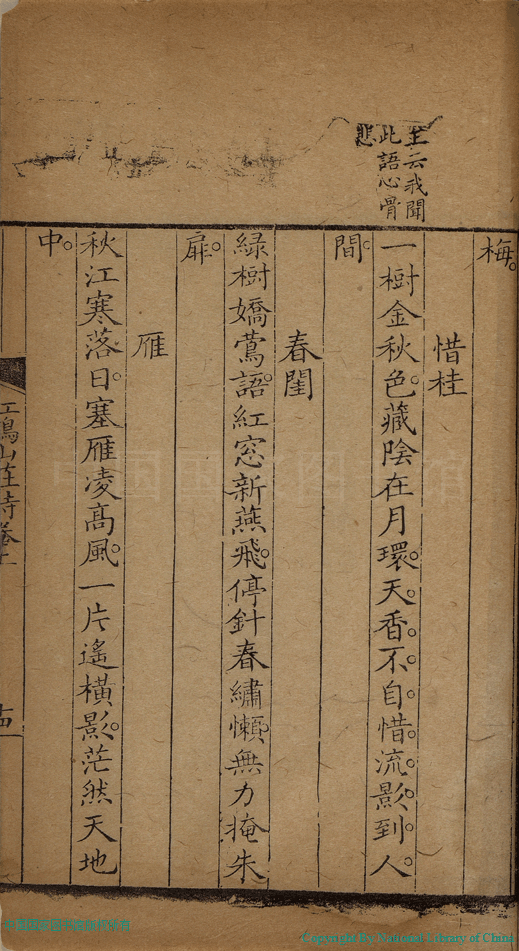 王云我聞
此語心骨
悲
梅
惜桂
一樹金秋色藏陰在月環天香不自惜流影到人
間
春閨
綠樹嬌鶯語紅窓新燕飛停針春繡懶無力掩朱
扉
雁
秋江寒落日塞雁凌高風一片遙橫影茫然天地
中
Copyright by National Library of China